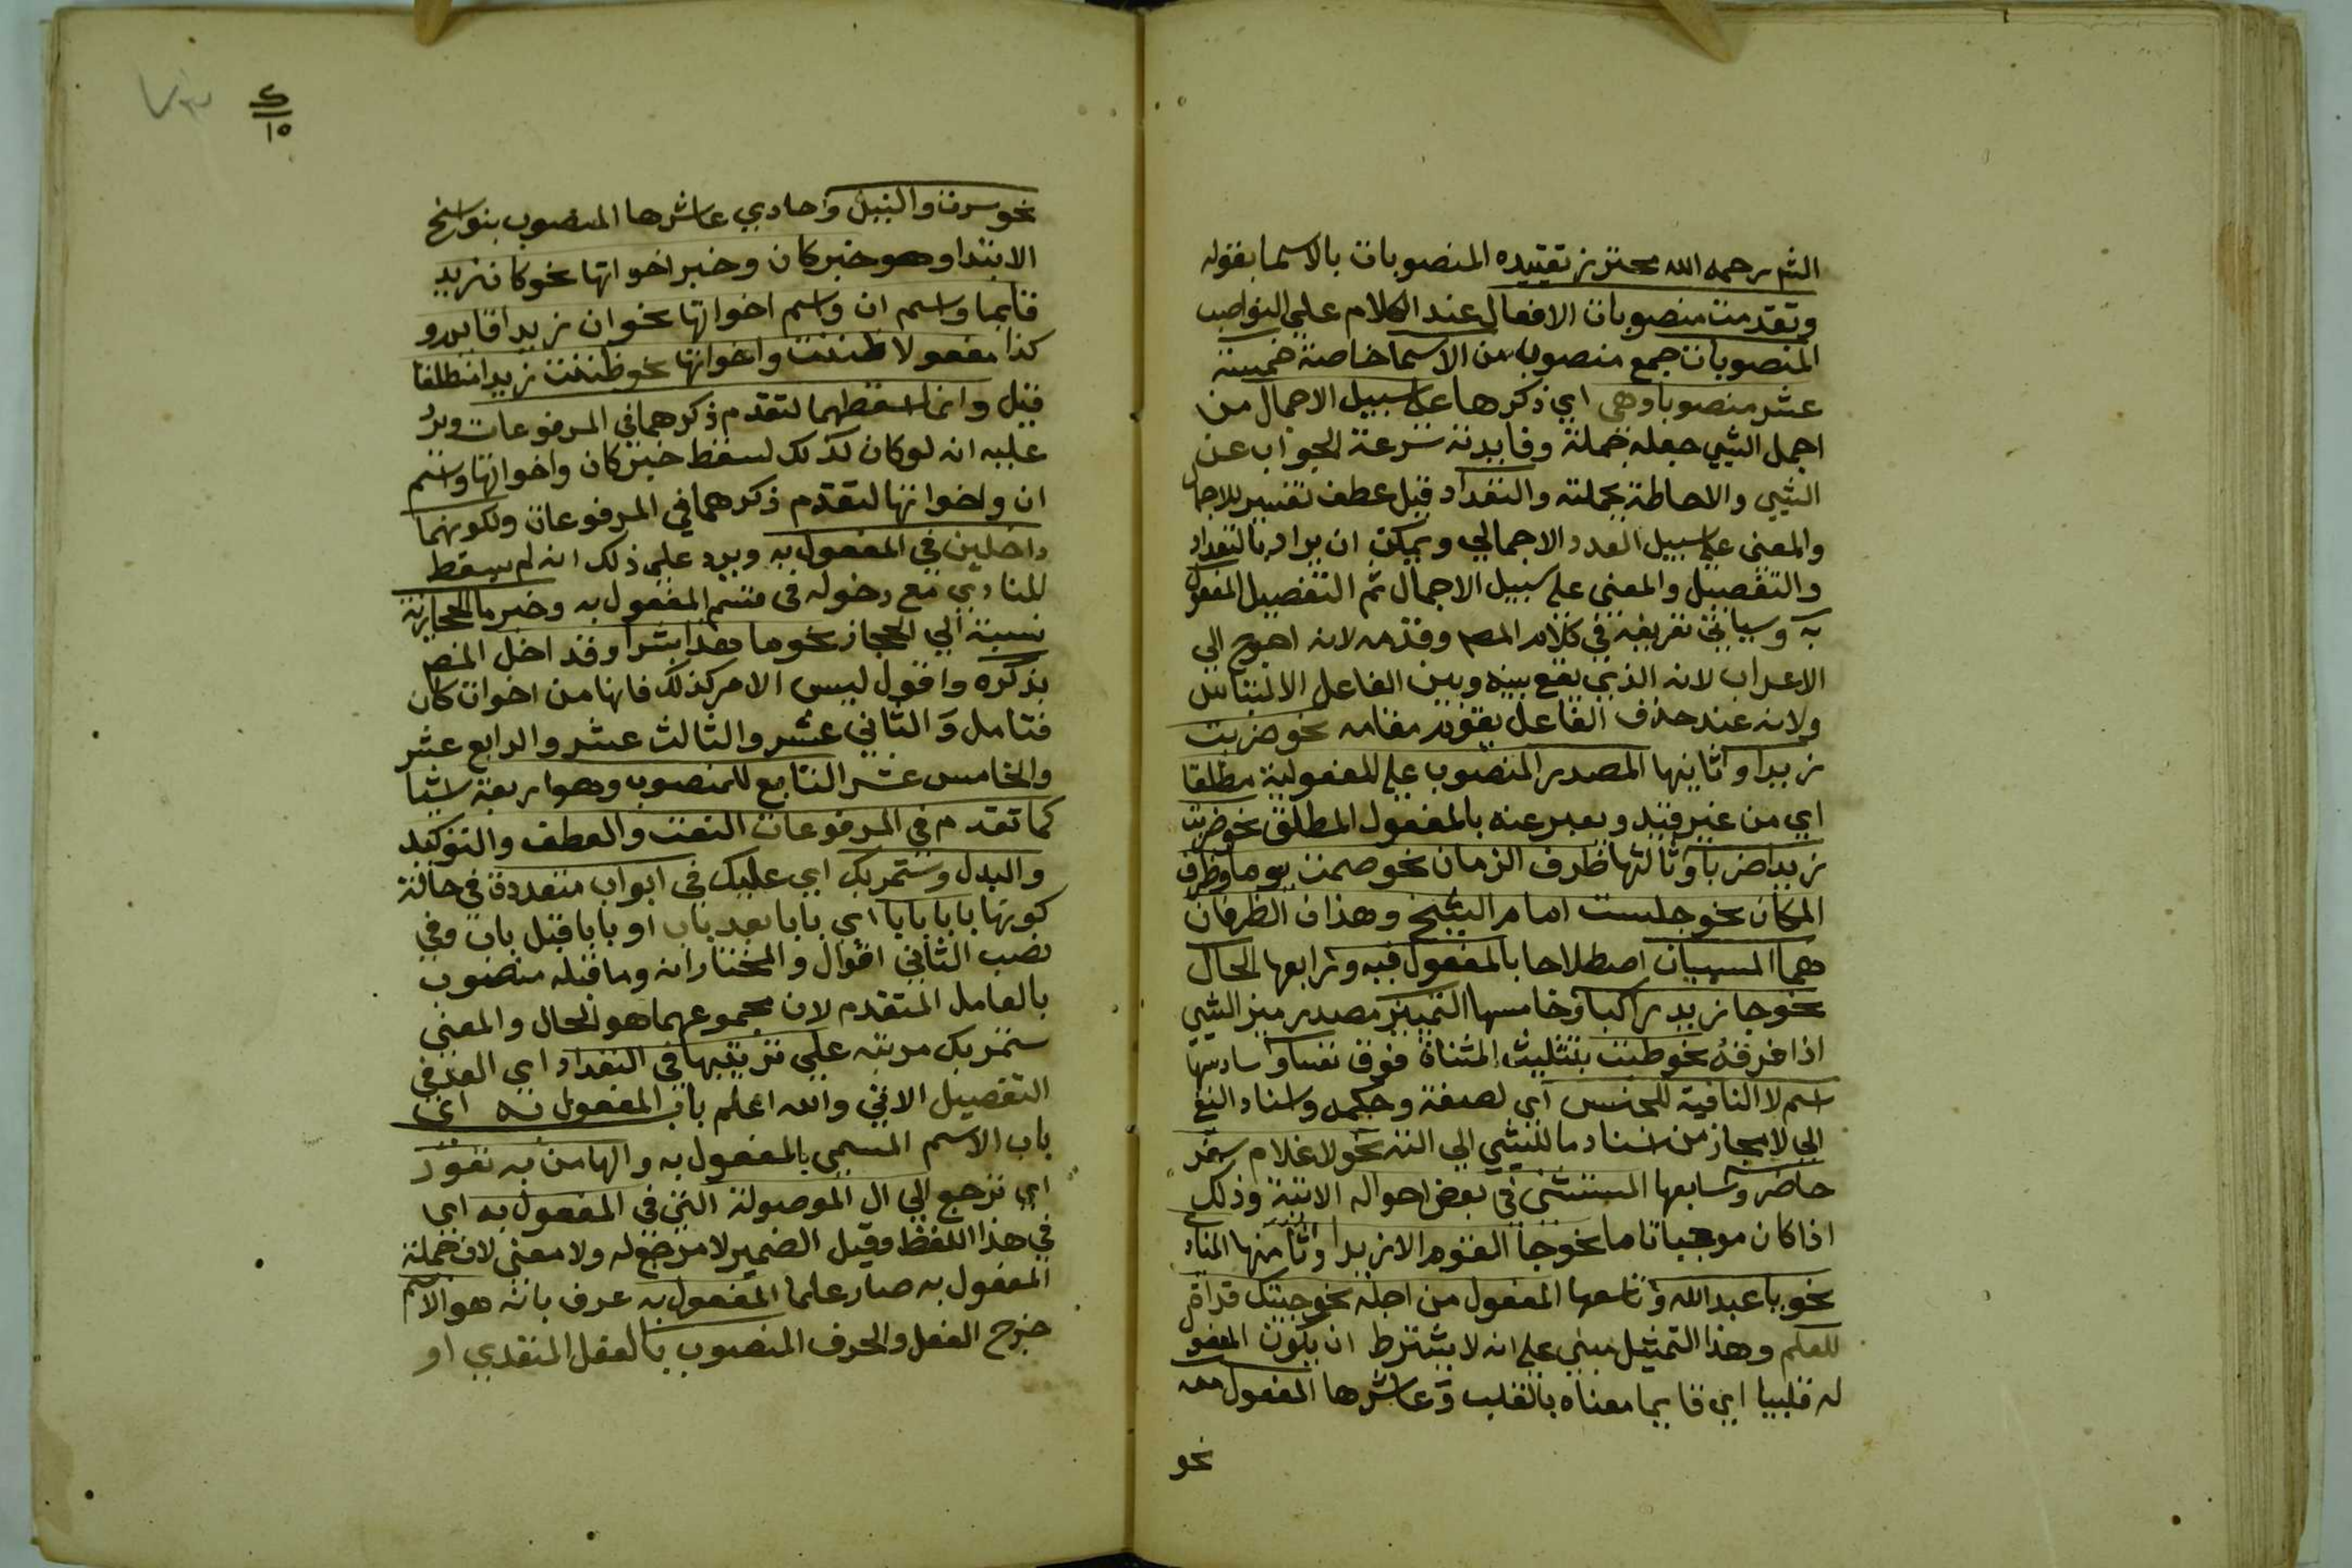 الش رحمه الله محترز تقييده المنصوبات بالاسما بقوله
وتقدمت منصوبات الافعال عند الكلام علي النواصب
المنصوبات جمع منصوب من الاسما خاصة خمسة
عشر منصوبا وهي اي ذكرها علي سبيل الاجمال من
اجمل الشي جعله جملة وفايدته سرعة الجواب عن
الشي والاحاطة بجملته والتعداد قبل عطف تفسير للاجما
والمعني علي سبيل العدد الاجمالي ويمكن ان يراد بالتعداد
والتفصيل والمعني علي سبيل الاجمال ثم التفصيل المفعول
به وسياتي تعريفه في كلام المص وقدمه لانه احوج الي
الاعراب لانه الذي يقع بينه وبين الفاعل الالتباس
ولانه عند حذف الفاعل يقوم مقامه نحو ضربت
زيدا وثانيها المصدر المنصوب علي المفعولية مطلقا
اي من غير قيد ويعبر عنه بالمفعول المطلق نحو ضربت
زيدا ضربا وثالثها ظرف الزمان نحو صمت يوما وظرف
المكان نحو جلست امام الشيخ وهذان الظرفان
هما المسميان اصطلاحا بالمفعول فيه ورابعها الحال
نحو جا زيد راكبا وخامسها التمييز مصدر ميز الشي
اذا فرقه نحو طبت بتثليث المثناة فوق نفسا وسادسها
اسم لا النافية للجنس اي لصفة وحكمه واسناد النفي
الي لا مجاز من اسناد ما للشي الي الته نحو لا غلام سفر
حاضر وسابعها المستثني في بعض احواله الاتية وذلك
اذا كان موجبا تاما نحو جا القوم الا زيدا وثامنها المناد
نحو يا عبد الله وتاسعها المفعول من اجله نحو جيتك قراة
للعلم وهذا التمثيل مبني علي انه لا يشترط ان يكون المفعو
له قلبيا اي قايما معناه بالقلب وعاشرها المفعول معه
نحو
٤
١٥
نحو سرت والنيل وحادي عاشرها المنصوب بنواسخ
الابتدا وهو خبر كان وخبر اخواتها نحو كان زيد
قايما واسم ان واسم اخواتها نحو ان زيدا قايم و
كذا مفعولا ظننت واخواتها نحو ظننت زيدا منطلقا
قيل وانما اسقطهما لتقدم ذكرهما في المرفوعات ويرد
عليه انه لو كان كذلك لسقط خبر كان واخواتها واسم
ان واخواتها لتقدم ذكرهما في المرفوعات ولكونهما
داخلين في المفعول به ويرد علي ذلك انه لم يسقط
للمنادي مع دخوله في قسم المفعول به وخبر ما الحجازية
نسبة الي الحجاز نحو ما هذا بشرا وقد اخل المص
بذكره واقول ليس الامر كذلك فانها من اخوات كان
فتامل والثاني عشر والثالث عشر والرابع عشر
والخامس عشر التابع للمنصوب وهو اربعة اشيا
كما تقدم في المرفوعات النعت والعطف والتوكيد
والبدل وستمر بك اي عليك في ابواب متعددة في حالة
كونها بابا بابا اي بابا بعد باب او بابا قبل باب وفي
نصب الثاني اقوال والمختار انه وما قبله منصوب
بالعامل المتقدم لان مجموعهما هو الحال والمعني
ستمر بك مرتبه علي ترتيبها في التعداد اي العد في
التفصيل الاتي والله اعلم باب المفعول به اي
باب الاسم المسمي بالمفعول به والها من به تعود
اي ترجع الي ال الموصولة التي في المفعول به اي
في هذا اللفظ وقيل الضمير لا مرجع له ولا معني لان جملة
المفعول به صار علما المفعول به عرف بانه هو الاسم
خرج الفعل والحرف المنصوب بالفعل المتعدي او